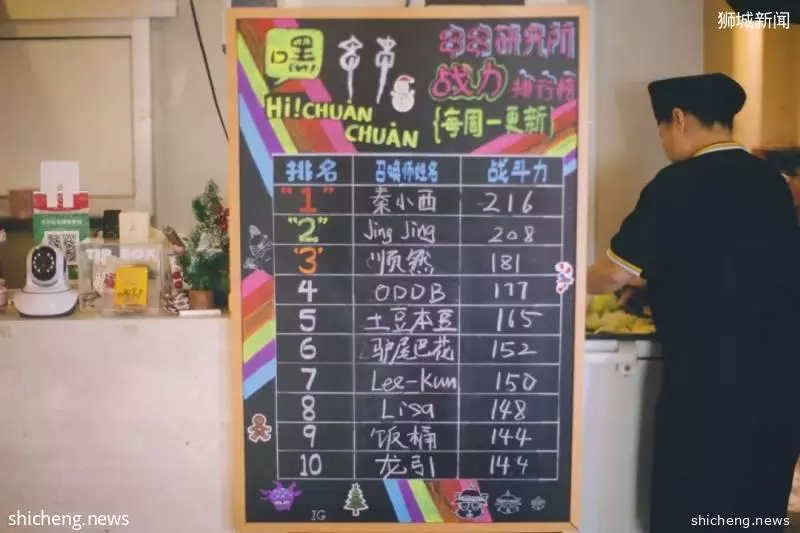 狮城新闻
嘿串串
Hi! CHUÀN CHUÀN
串串研究所
战力排行榜
{每周一更新}
排名 召唤师姓名 战斗力
"1" 秦小西 216
"2" Jing Jing 208
"3" 顺然 181
4 ODDB 177
5 土豆本豆 165
6 驴尾巴花 152
7 Lee-Kun 150
8 Lisa 148
9 饭桶 144
10 龙引 144
IG
TIP BOX
shicheng.news
shicheng.news